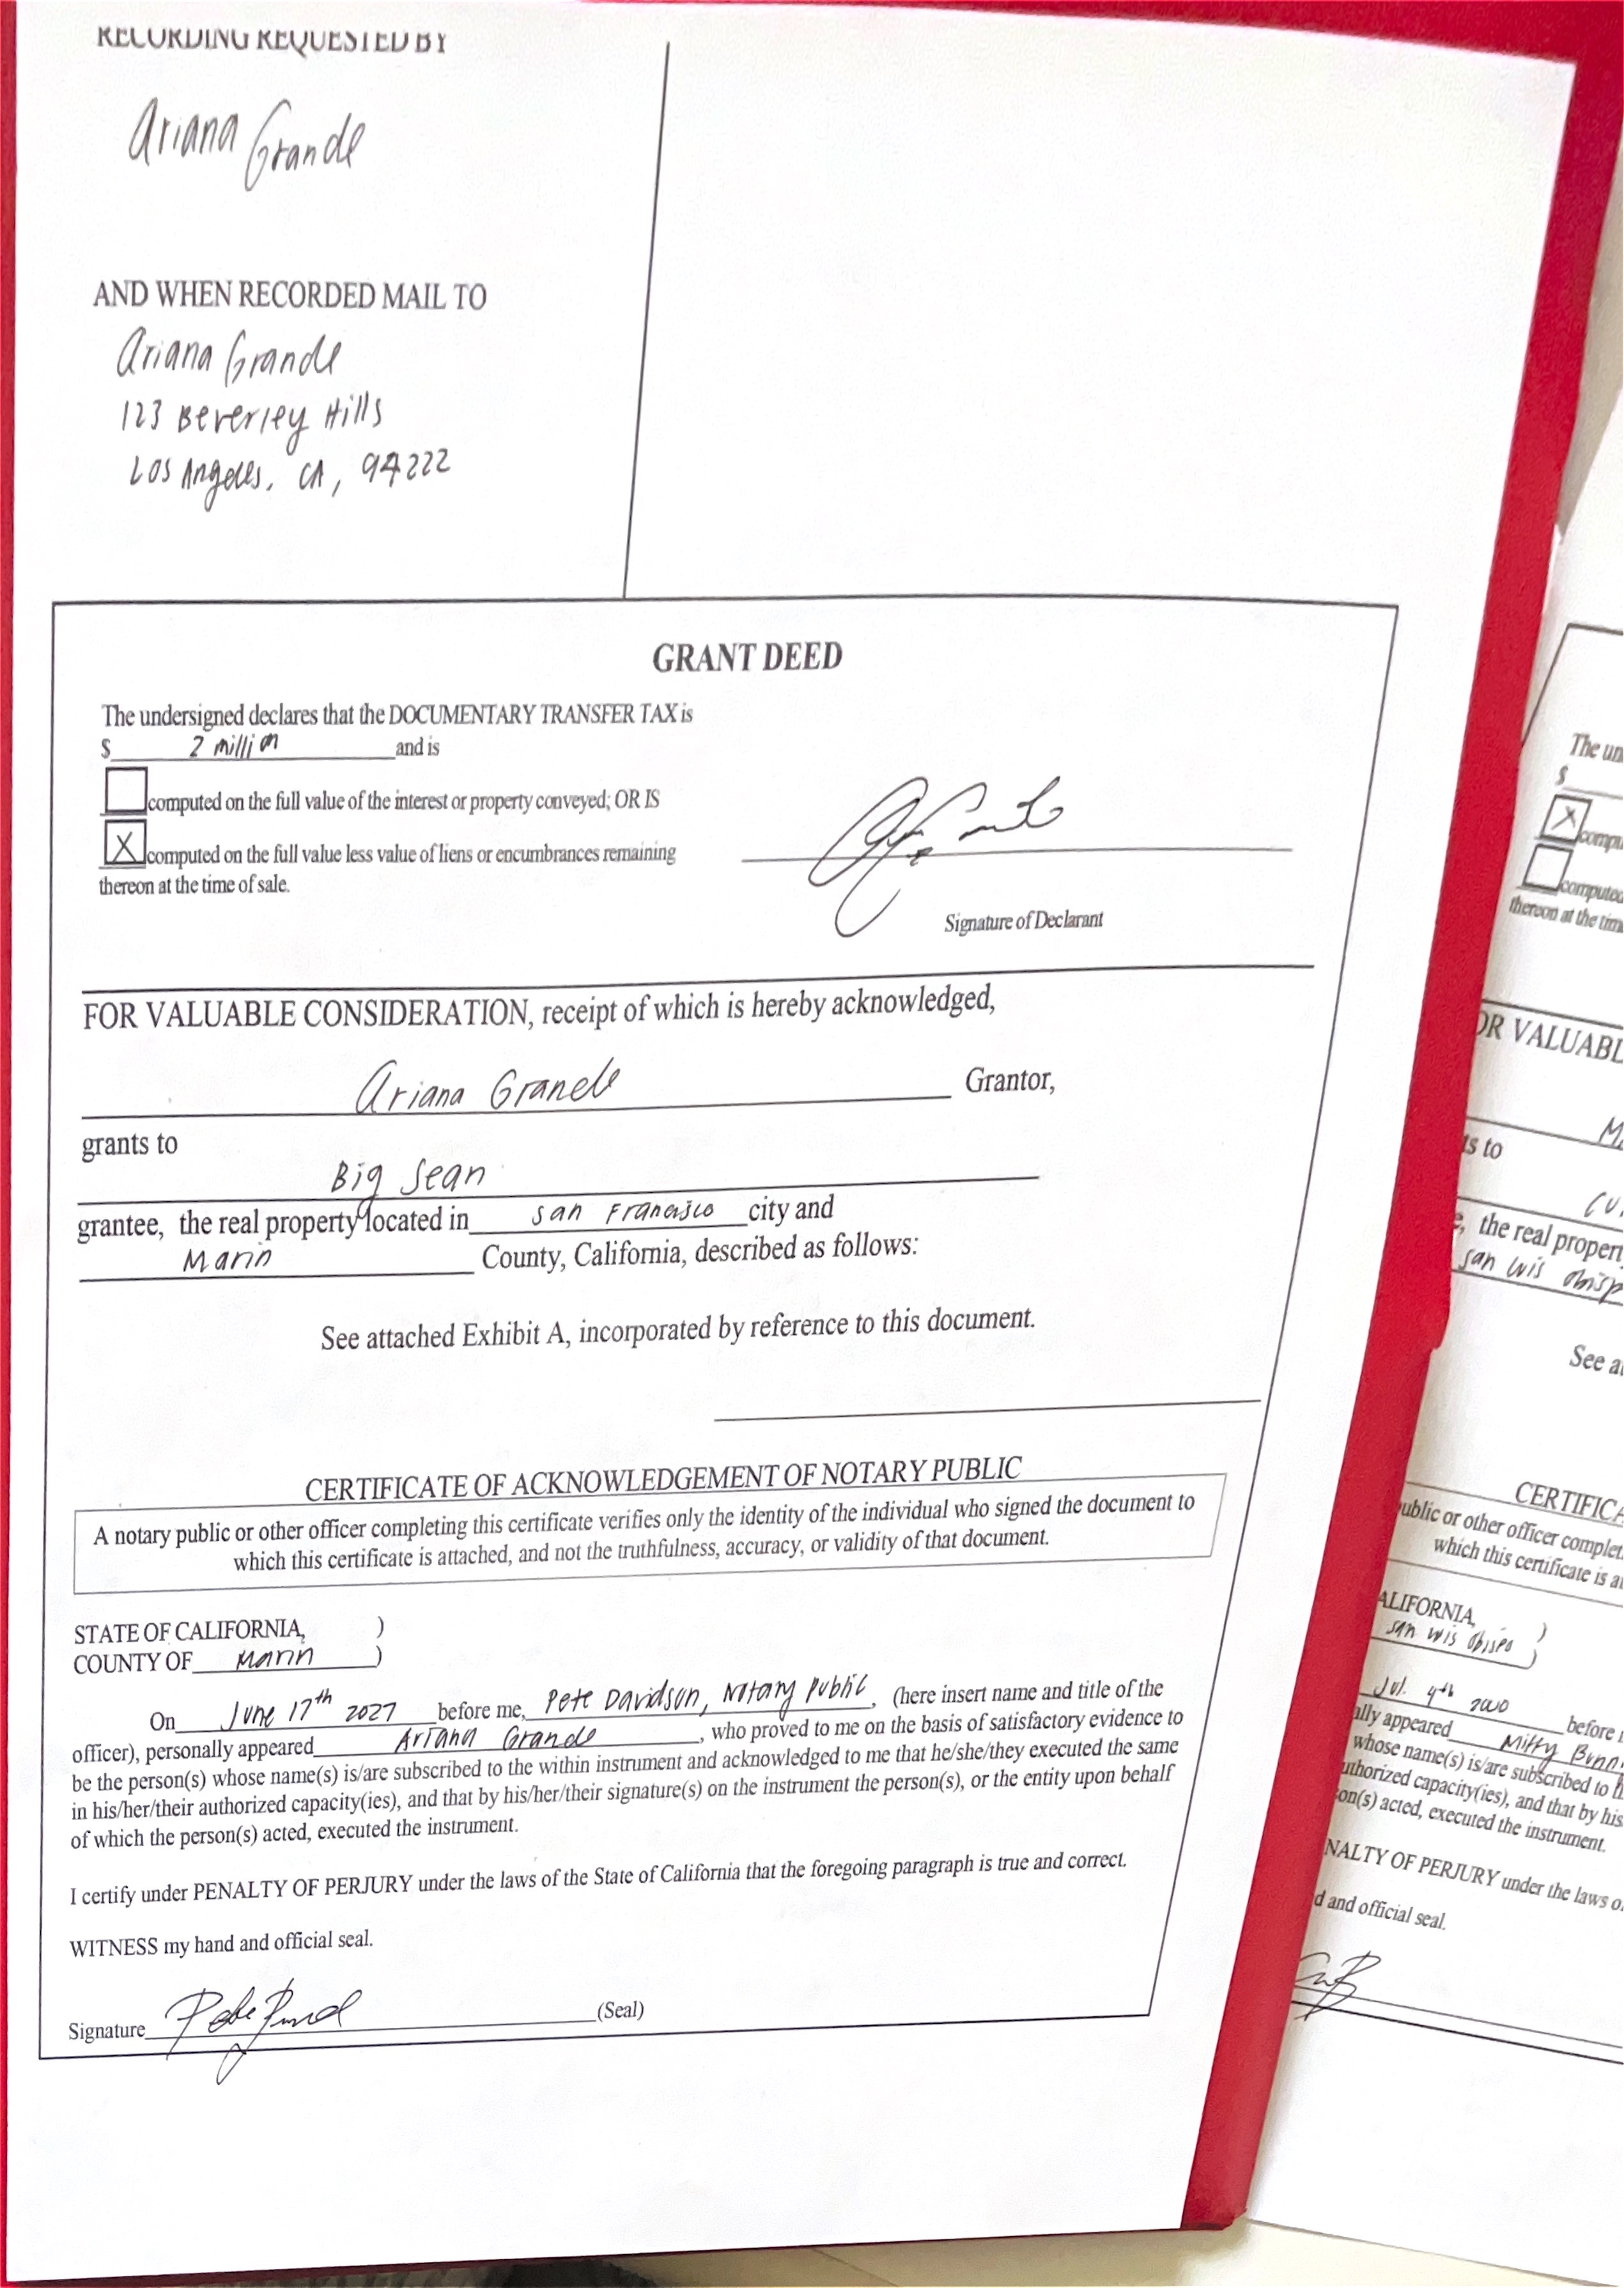 RECORDING REQUESTED BY
Ariana Grande
AND WHEN RECORDED MAIL TO
Ariana Grande
123 Beverley Hills
Los Angeles, CA, 94222
GRANT DEED
The undersigned declares that the DOCUMENTARY TRANSFER TAX is
$ 2 million and is
computed on the full value of the interest or property conveyed; OR IS
X computed on the full value less value of liens or encumbrances remaining
thereon at the time of sale.
Signature of Declarant
FOR VALUABLE CONSIDERATION, receipt of which is hereby acknowledged,
Ariana Grande Grantor,
grants to
Big Sean
grantee, the real property located in San Francisco city and
Marin County, California, described as follows:
See attached Exhibit A, incorporated by reference to this document.
CERTIFICATE OF ACKNOWLEDGEMENT OF NOTARY PUBLIC
A notary public or other officer completing this certificate verifies only the identity of the individual who signed the document to
which this certificate is attached, and not the truthfulness, accuracy, or validity of that document.
STATE OF CALIFORNIA, )
COUNTY OF Marin )
On June 17th 2027 before me, Pete Davidson, Notary Public, (here insert name and title of the
officer), personally appeared Ariana Grande, who proved to me on the basis of satisfactory evidence to
be the person(s) whose name(s) is/are subscribed to the within instrument and acknowledged to me that he/she/they executed the same
in his/her/their authorized capacity(ies), and that by his/her/their signature(s) on the instrument the person(s), or the entity upon behalf
of which the person(s) acted, executed the instrument.
I certify under PENALTY OF PERJURY under the laws of the State of California that the foregoing paragraph is true and correct.
WITNESS my hand and official seal.
Signature (Seal)
The un
$
X compu
computed
thereon at the tim
OR VALUABL
ts to
, the real propert
San Luis Obisp
See a
CERTIFICA
ublic or other officer complet
which this certificate is a
ALIFORNIA, )
San Luis Obispo )
Jul. 4th 2000 before
ally appeared Miffy Bunn
whose name(s) is/are subscribed to
uthorized capacity(ies), and that by his
on(s) acted, executed the instrument.
NALTY OF PERJURY under the laws o
d and official seal.